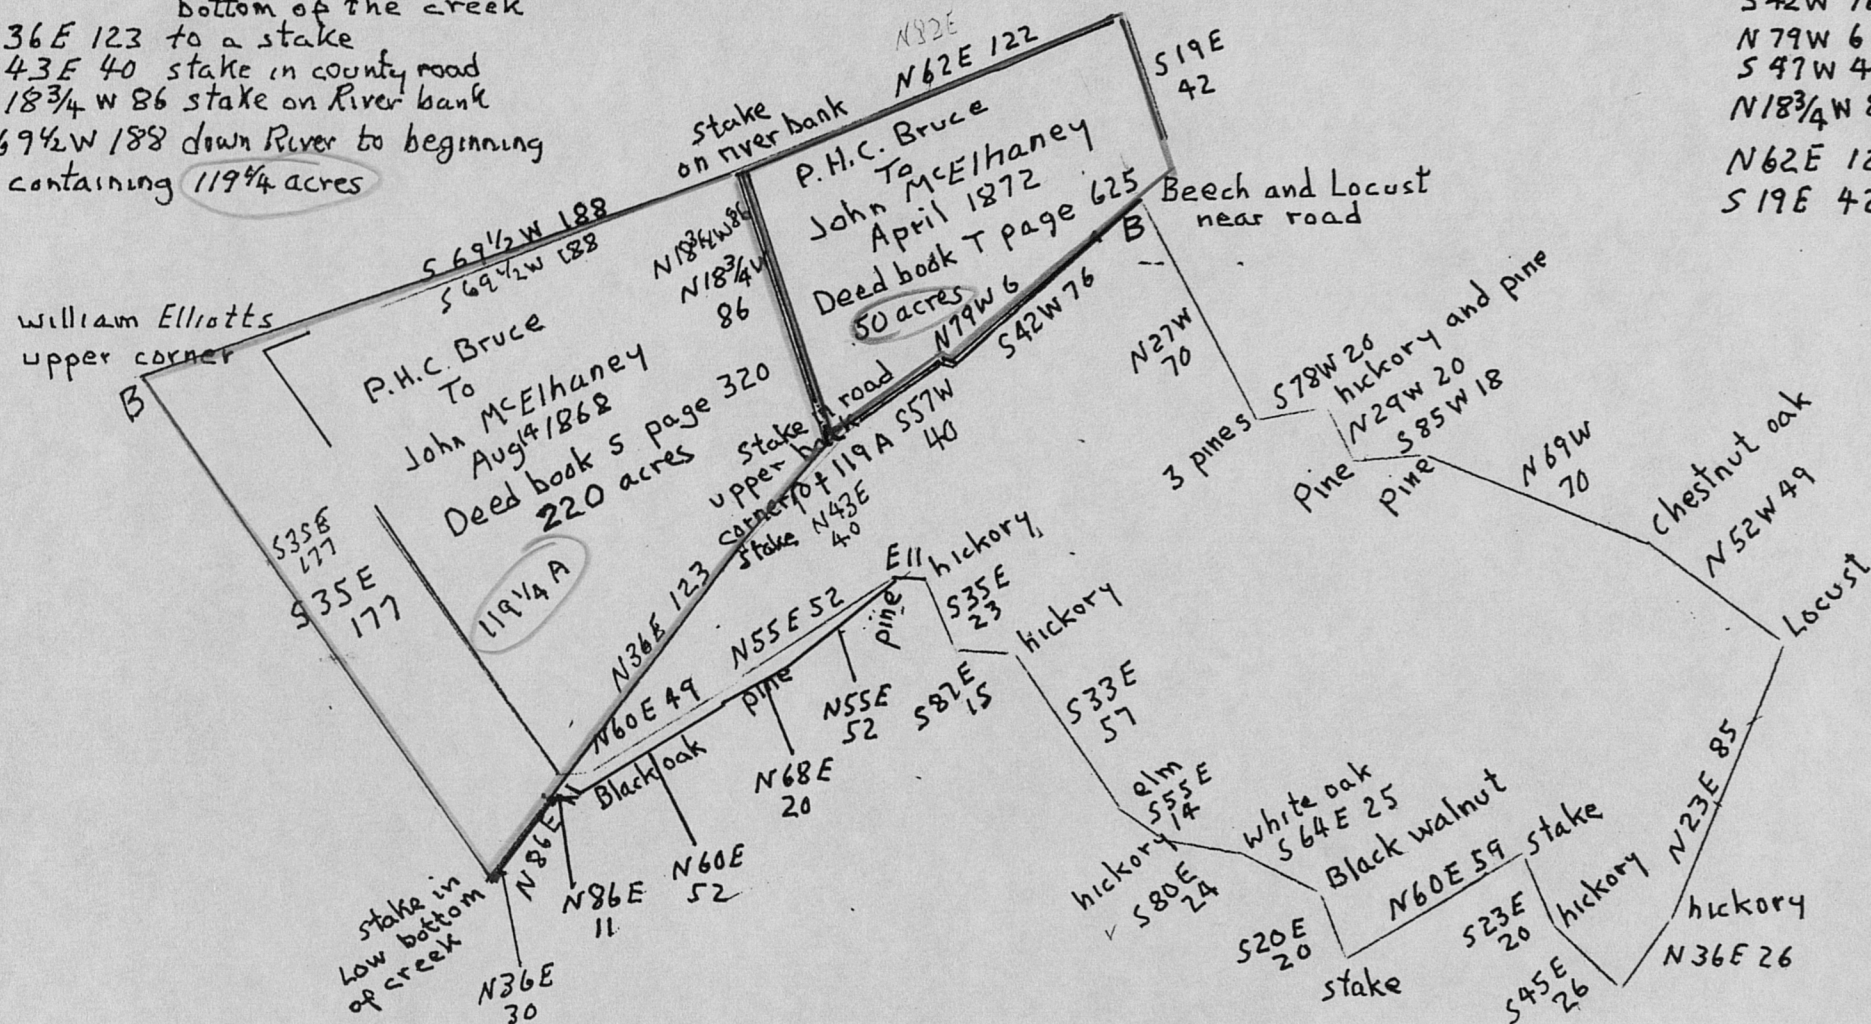 bottom of the creek
36E 123 to a stake
43E 40 stake in county road
18 3/4 W 86 stake on River bank
69 1/2 W 188 down River to beginning
containing 119 1/4 acres
S42W
N79W 6
S47W 4
N18 3/4 W 8
N62E 12
S19E 42
N82E
N62E 122
S19E
42
stake
on river bank
P.H.C. Bruce
To
John McElhaney
April 1872
Deed book T page 625
50 acres
Beech and Locust
near road
B
S 69 1/2 W 188
S 69 1/2 W 188
N18 3/4 W 86
N18 3/4 W
86
William Elliotts
upper corner
B
P.H.C. Bruce
To
John McElhaney
Aug 14 1868
Deed book S page 320
220 acres
119 1/4 A
S35E
177
S35E
177
N79W 6
S42W 76
S57W
40
stake in road
upper back
corner of 119 A
stake
N43E
40
N36E 123
N27W
70
3 pines
S78W 20
hickory and pine
N29W 20
S85W 18
Pine
Pine
N69W
70
Chestnut oak
N52W 49
Locust
N60E 49
N55E 52
E11
pine
hickory
S35E
23
hickory
S82E
15
S33E
57
Black oak
pine
N55E
52
N68E
20
N60E
52
N86E
N86E
11
N36E
30
stake in
Low bottom
of creek
elm
S55E
14
hickory
S80E
24
white oak
S64E 25
Black walnut
S20E
20
stake
N60E 59
stake
S23E
20
hickory
S45E
26
N23E 85
hickory
N36E 26